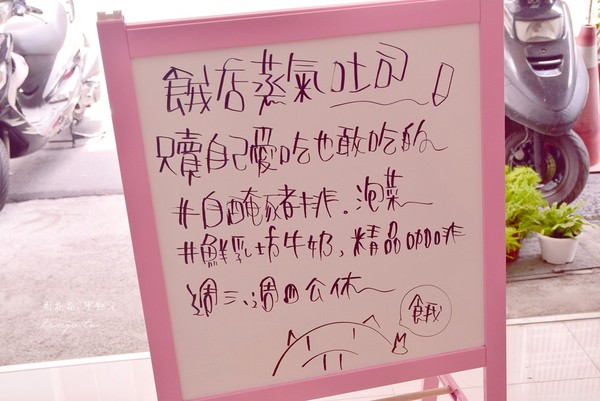 餓店蒸氣吐司
只賣自己愛吃也敢吃的~
#自醃豬排。泡菜~
#鮮乳坊牛奶、精品咖啡
週三、週四公休~
餓